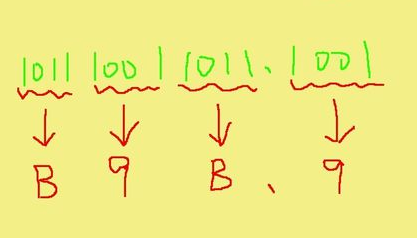 1011 1001 1011.1001
B 9 B . 9